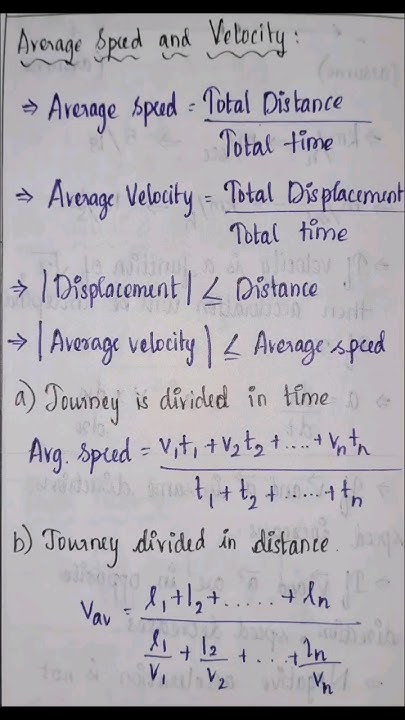 Average Speed and Velocity:
⇒ Average speed = Total Distance / Total time
⇒ Average Velocity = Total Displacement / Total time
⇒ |Displacement| ≤ Distance
→ |Average velocity| ≤ Average speed
a) Journey is divided in time
Avg. speed = v₁t₁ + v₂t₂ + .... + vₙtₙ / t₁ + t₂ + ...... + tₙ
b) Journey divided in distance.
Vav = l₁ + l₂ + ...... + lₙ / l₁/v₁ + l₂/v₂ + ... + lₙ/vₙ